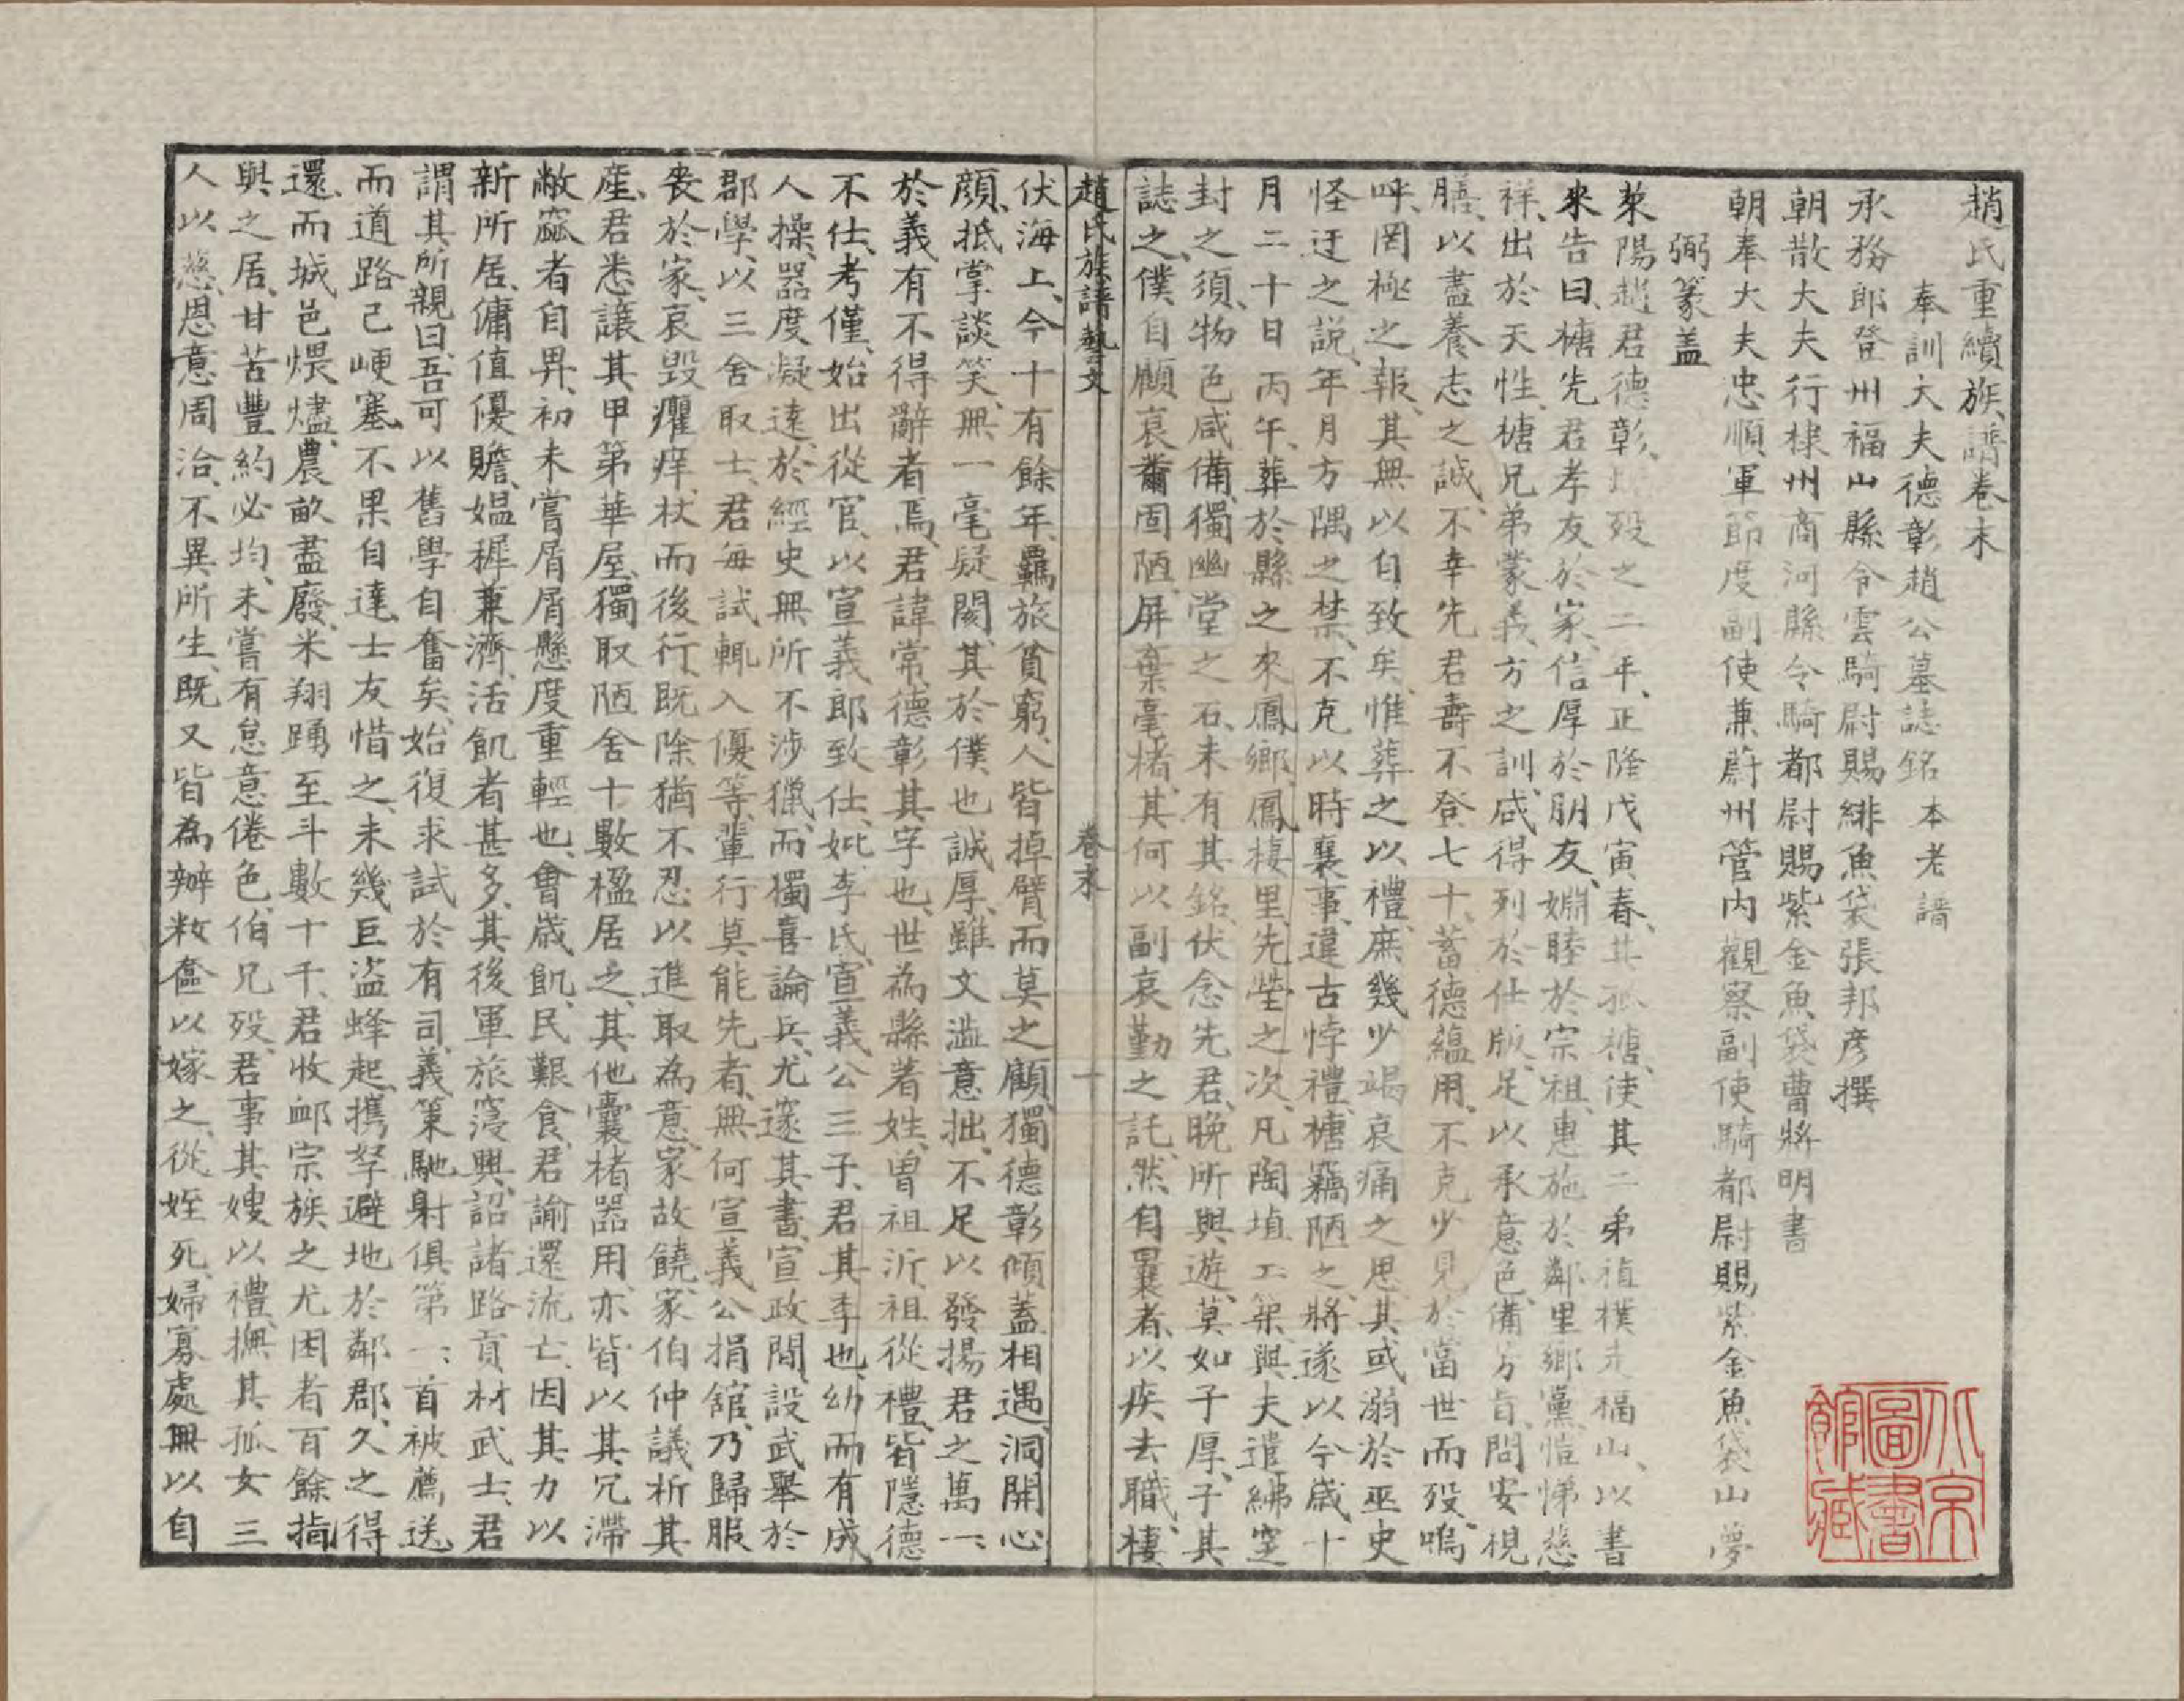 趙氏重續族譜卷末
奉訓大夫德彰趙公墓誌銘 本老譜
承務郎登州福山縣令雲騎尉賜緋魚袋張邦彦撰
朝散大夫行棣州商河縣令騎都尉賜紫金魚袋曹將明書
朝奉大夫忠順軍節度副使兼蔚州管内觀察副使騎都尉賜紫金魚袋山夢
弼篆盖
萊陽趙君德彰旣歿之二年、正隆戊寅春、其孤榶、使其二弟禎樸走福山、以書
來告曰、榶先君孝友於家、信厚於朋友、婣睦於宗祖、惠施於鄰里鄉黨、愷悌慈
祥、出於天性、榶兄弟蒙義方之訓、咸得列於仕版、足以承意色、備芳旨、問安視
膳、以盡養志之誠、不幸先君壽不登七十、蓄德蘊用、不克少見於當世而歿、嗚
呼、罔極之報、其無以自致矣、惟葬之以禮、庶幾少竭哀痛之思、其或溺於巫史
怪迂之説、年月方隅之禁、不克以時襄事、違古悖禮、榶竊陋之、將遂以今歲十
月二十日丙午、葬於縣之來鳳鄉、鳳棲里、先塋之次、凡陶埴工築、與夫遣綍窆
封之須、物色咸備、獨幽堂之石、未有其銘、伏念先君、晚所與遊、莫如子厚、子其
誌之、僕自顧哀薾固陋、屏棄毫楮、其何以副哀勤之託、然自曩者、以疾去職、棲
趙氏族譜藝文 卷末 一
伏海上、今十有餘年、羈旅貧窮、人皆掉臂而莫之顧、獨德彰傾蓋相遇、洞開心
顔、抵掌談笑、無一毫疑閡、其於僕也誠厚、雖文澁意拙、不足以發揚君之萬一、
於義有不得辭者焉、君諱常、德彰其字也、世為縣著姓、曽祖沂、祖從禮、皆隱德
不仕、考僅、始出從官、以宣義郎致仕、妣李氏、宣義公三子、君其季也、幼而有成
人操、器度凝遠、於經史無所不涉獵、而獨喜論兵、尤邃其書、宣政間、設武舉於
郡學、以三舍取士、君每試輒入優等、輩行莫能先者、無何宣義公捐舘、乃歸服
喪於家、哀毀癯瘁、杖而後行、既除猶不忍以進取為意、家故饒、家伯仲議析其
產、君悉讓其甲第華屋、獨取陋舍十數楹居之、其他囊楮器用、亦皆以其冗滯
敝窳者自畀、初未嘗屑屑懸度重輕也、會歲飢、民艱食、君諭還流亡、因其力以
新所居、傭值優贍、媼穉兼濟、活飢者甚多、其後軍旅寖興、詔諸路貢材武士、君
謂其所親曰、吾可以舊學自奮矣、始復求試於有司、義策馳射俱第一、首被薦送
而道路已峺塞、不果自達、士友惜之、未幾巨盜蜂起、携孥避地於鄰郡、久之得
還、而城邑煨燼、農畝盡廢、米翔踴至斗數十千、君收䘏宗族之尤困者百餘指
與之居、甘苦豐約必均、未嘗有怠意倦色、伯兄歿、君事其嫂以禮、撫其孤女三
人以慈、恩意周洽、不異所生、既又皆為辦籹奩以嫁之、從姪死、婦寡處無以自
北京
圖書
館藏